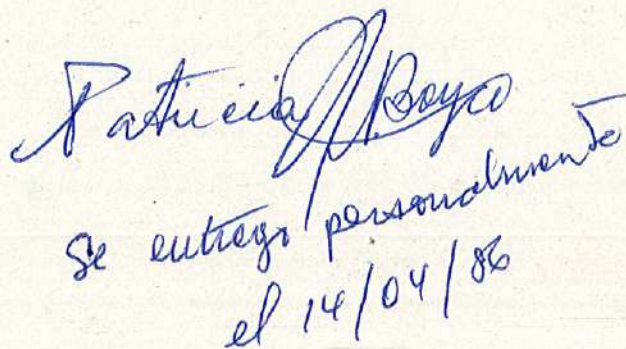 Patricia Boyco
Se entregó personalmente
el 14/04/86